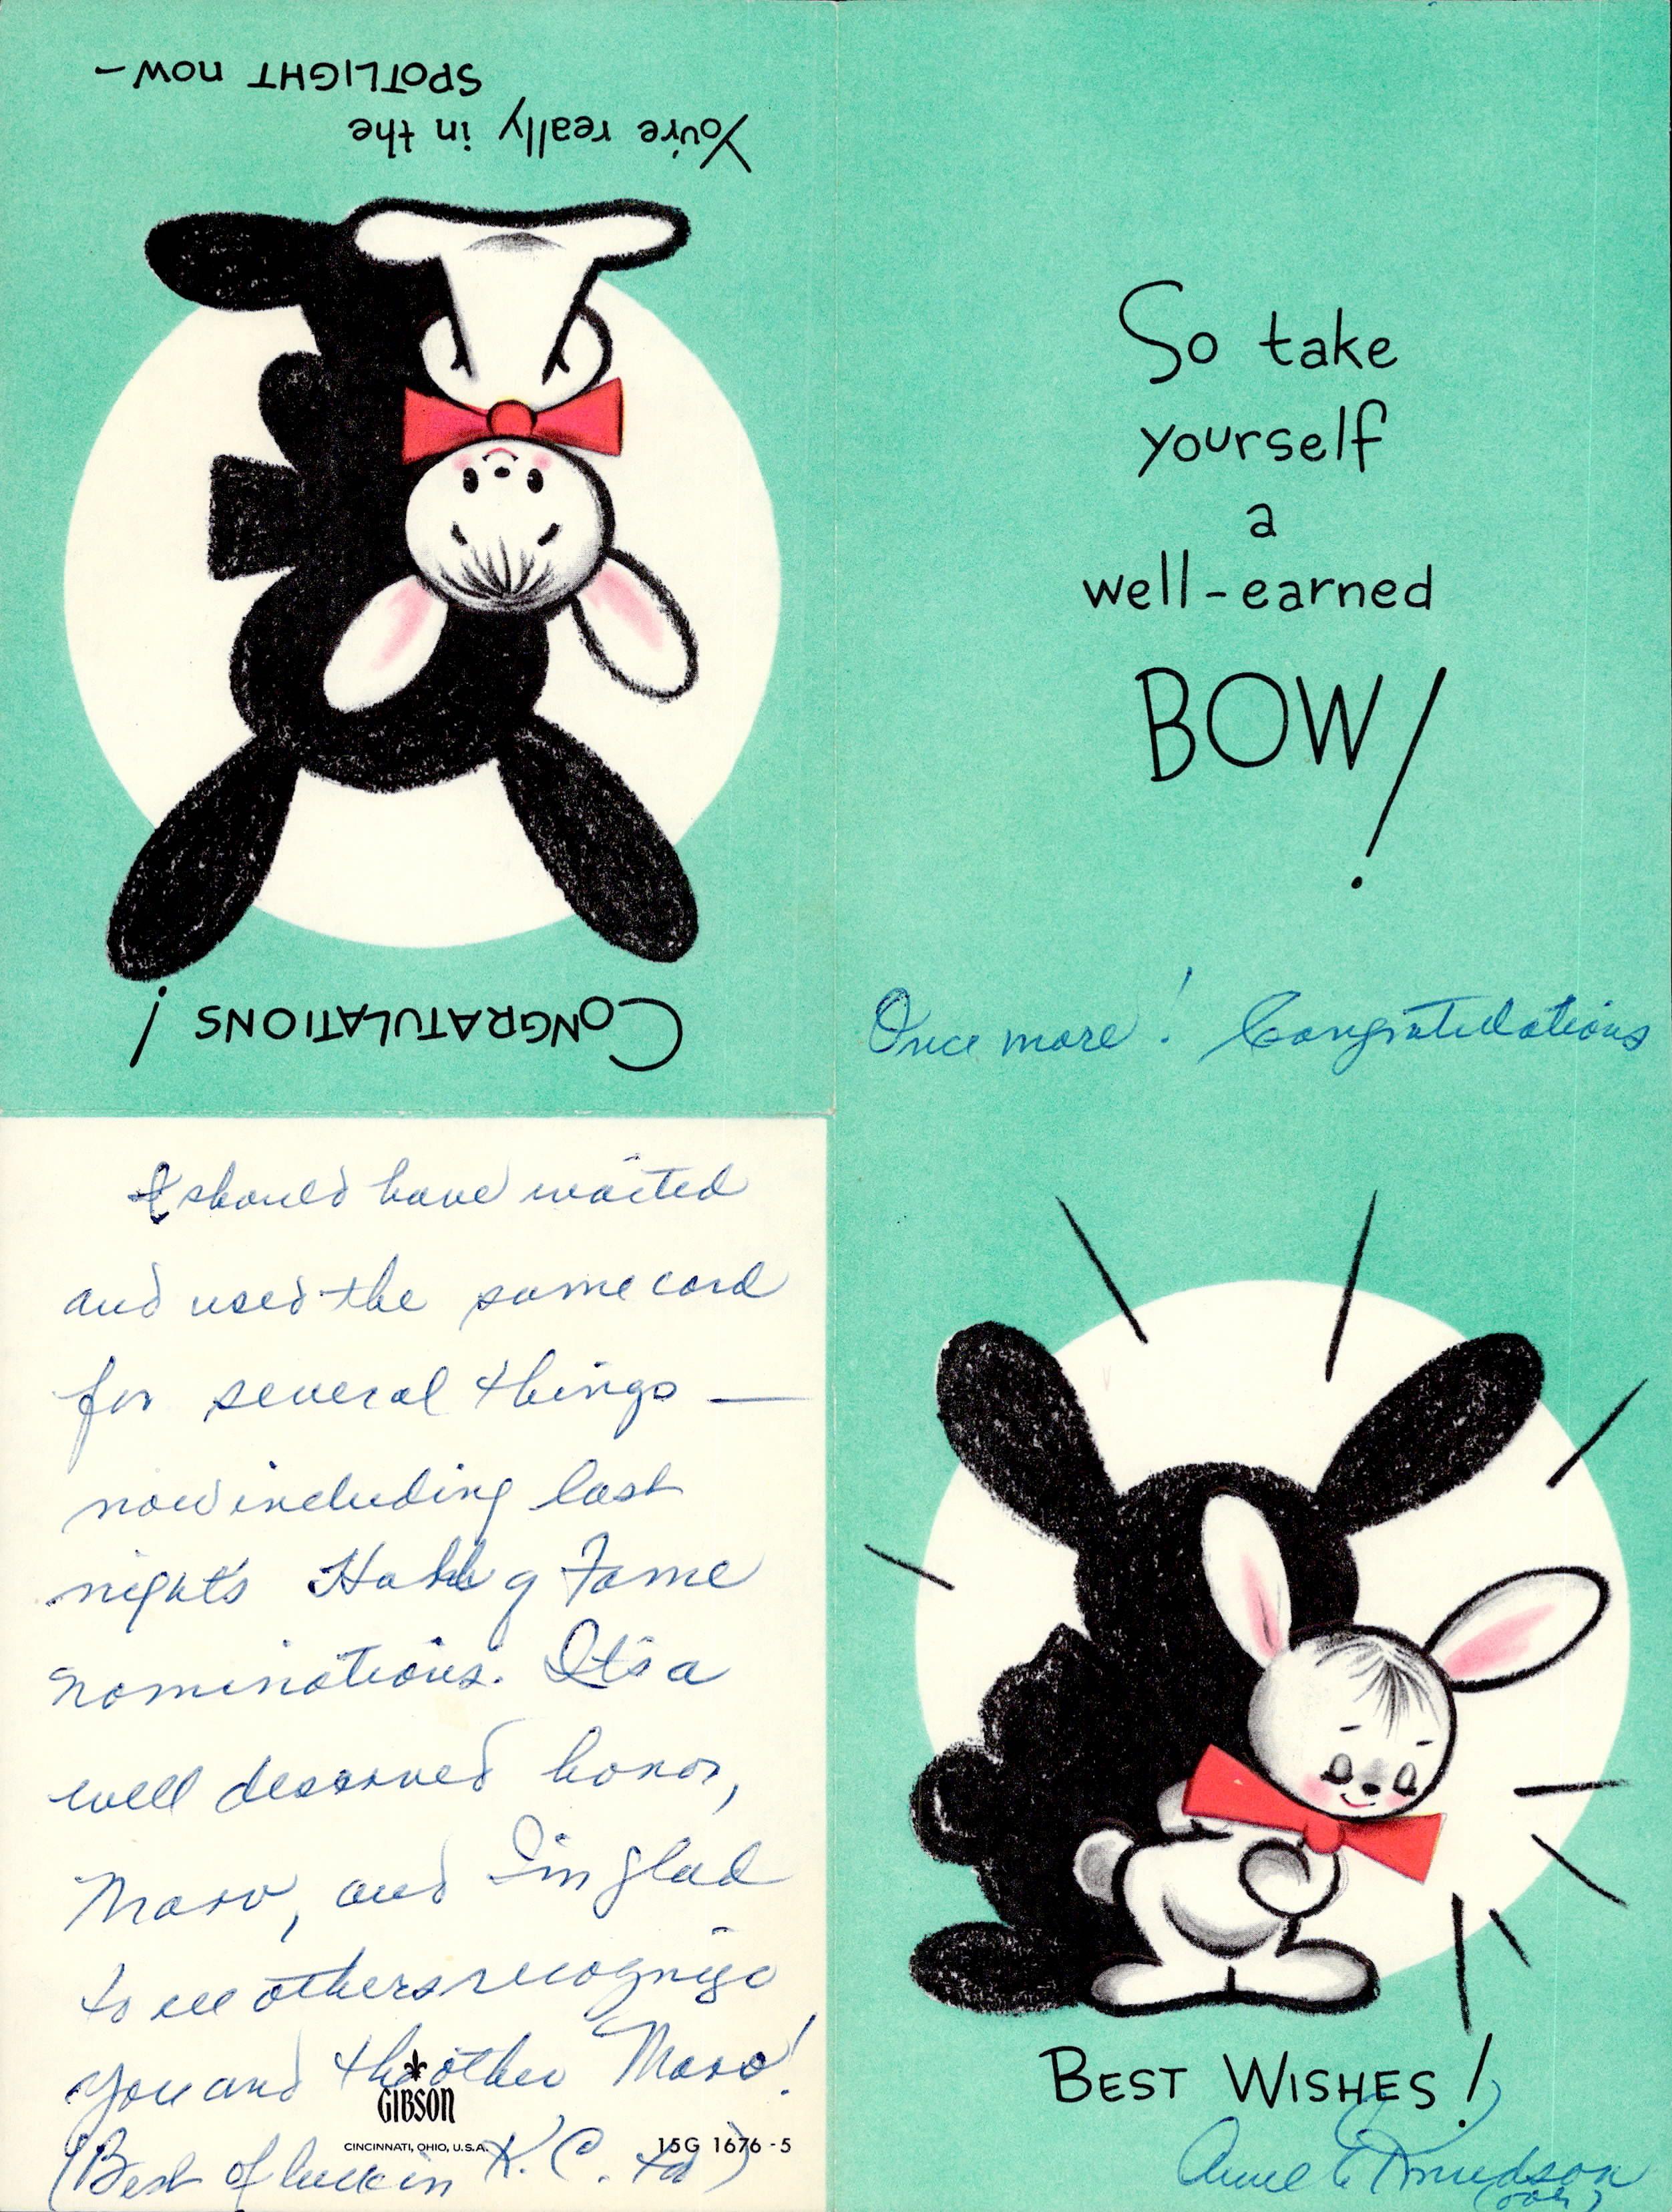 CONGRATULATIONS!
You're really in the
SPOTLIGHT now—
So take
yourself
a
well-earned
BOW!
Once more! Congratulations
BEST WISHES!
Anne E Knudson
(over)
I should have waited
and used the same card
for several things —
now including last
night's Hall of Fame
nominations. It's a
well deserved honor,
Marv, and I'm glad
to see others recognize
you and the other Marv!
(Best of luck in K.C. too)
GIBSON
CINCINNATI, OHIO, U.S.A.
15G 1676-5